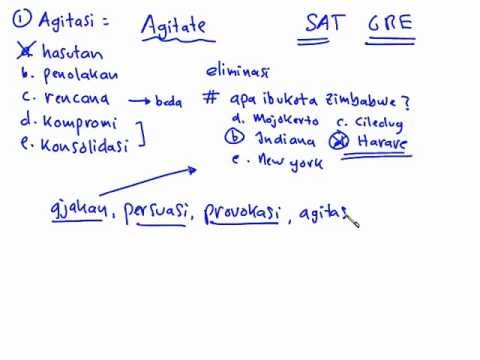 ① Agitasi = Agitate SAT GRE
a. hasutan
b. penolakan
c. rencana → beda
d. Kompromi
e. Konsolidasi
eliminasi
# apa ibukota zimbabwe?
a. Mojokerto c. Ciledug
b Indiana d Harare
e. New york
ajakan, persuasi, provokasi, agitasi